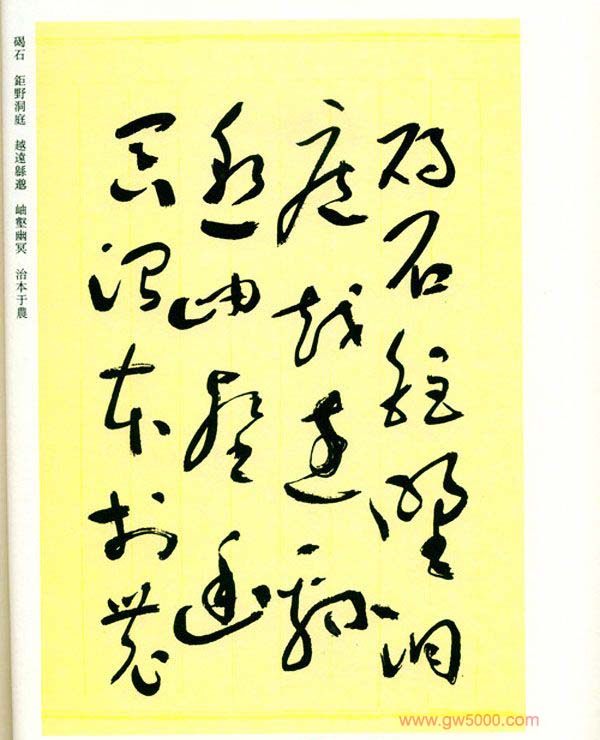 碣石鉅野洞
庭越遠緜
邈岫壑幽
冥治本於農
碣石　鉅野洞庭　越遠緜邈　岫壑幽冥　治本于農
www.gw5000.com